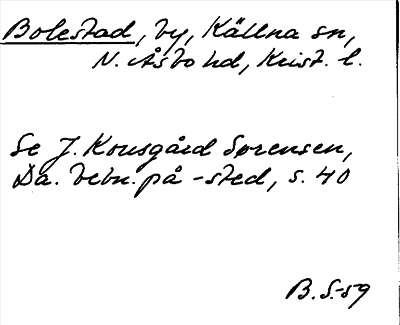 Bolestad, by, Källna sn,
N. Åsbo hd, Krist. l.
Se J. Kousgård Sørensen,
Da. bebn. på -sted, s. 40
B. S.-59